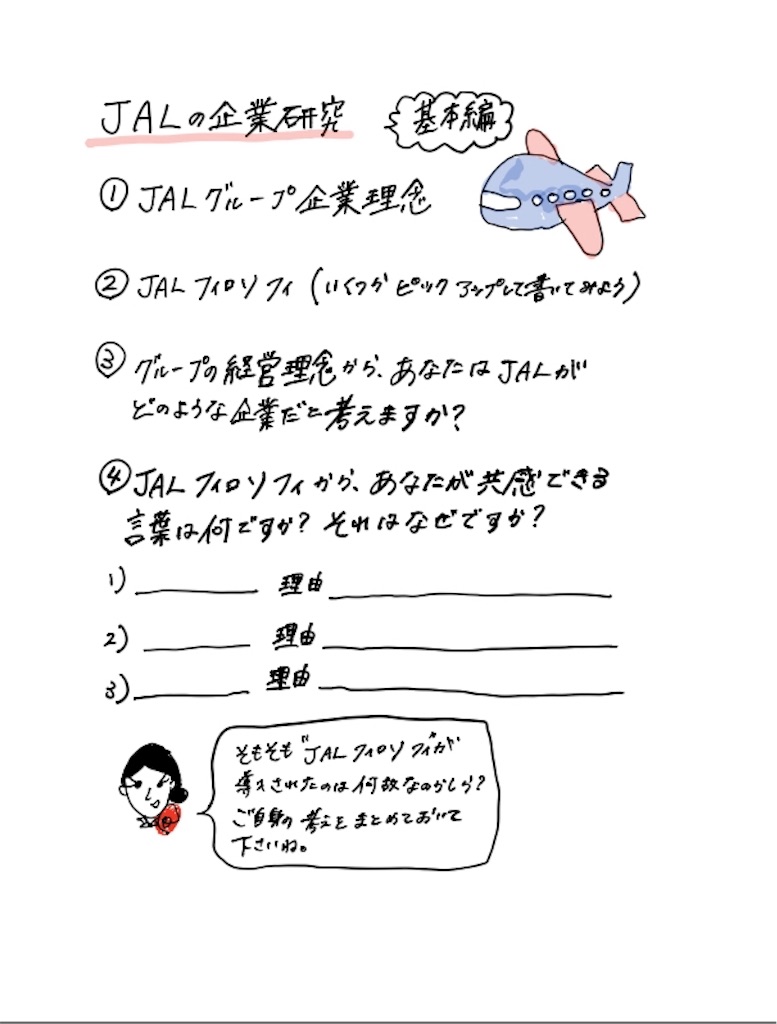 JALの企業研究
基本編
① JALグループ企業理念
② JALフィロソフィ(いくつかピックアップして書いてみよう)
③ グループの経営理念から、あなたはJALが
どのような企業だと考えますか?
④ JALフィロソフィから、あなたが共感できる
言葉は何ですか? それはなぜですか?
1) 理由
2) 理由
3) 理由
そもそも"JALフィロソフィ"が
導入されたのは何故なのかしら?
ご自身の考えをまとめておいて
下さいね。